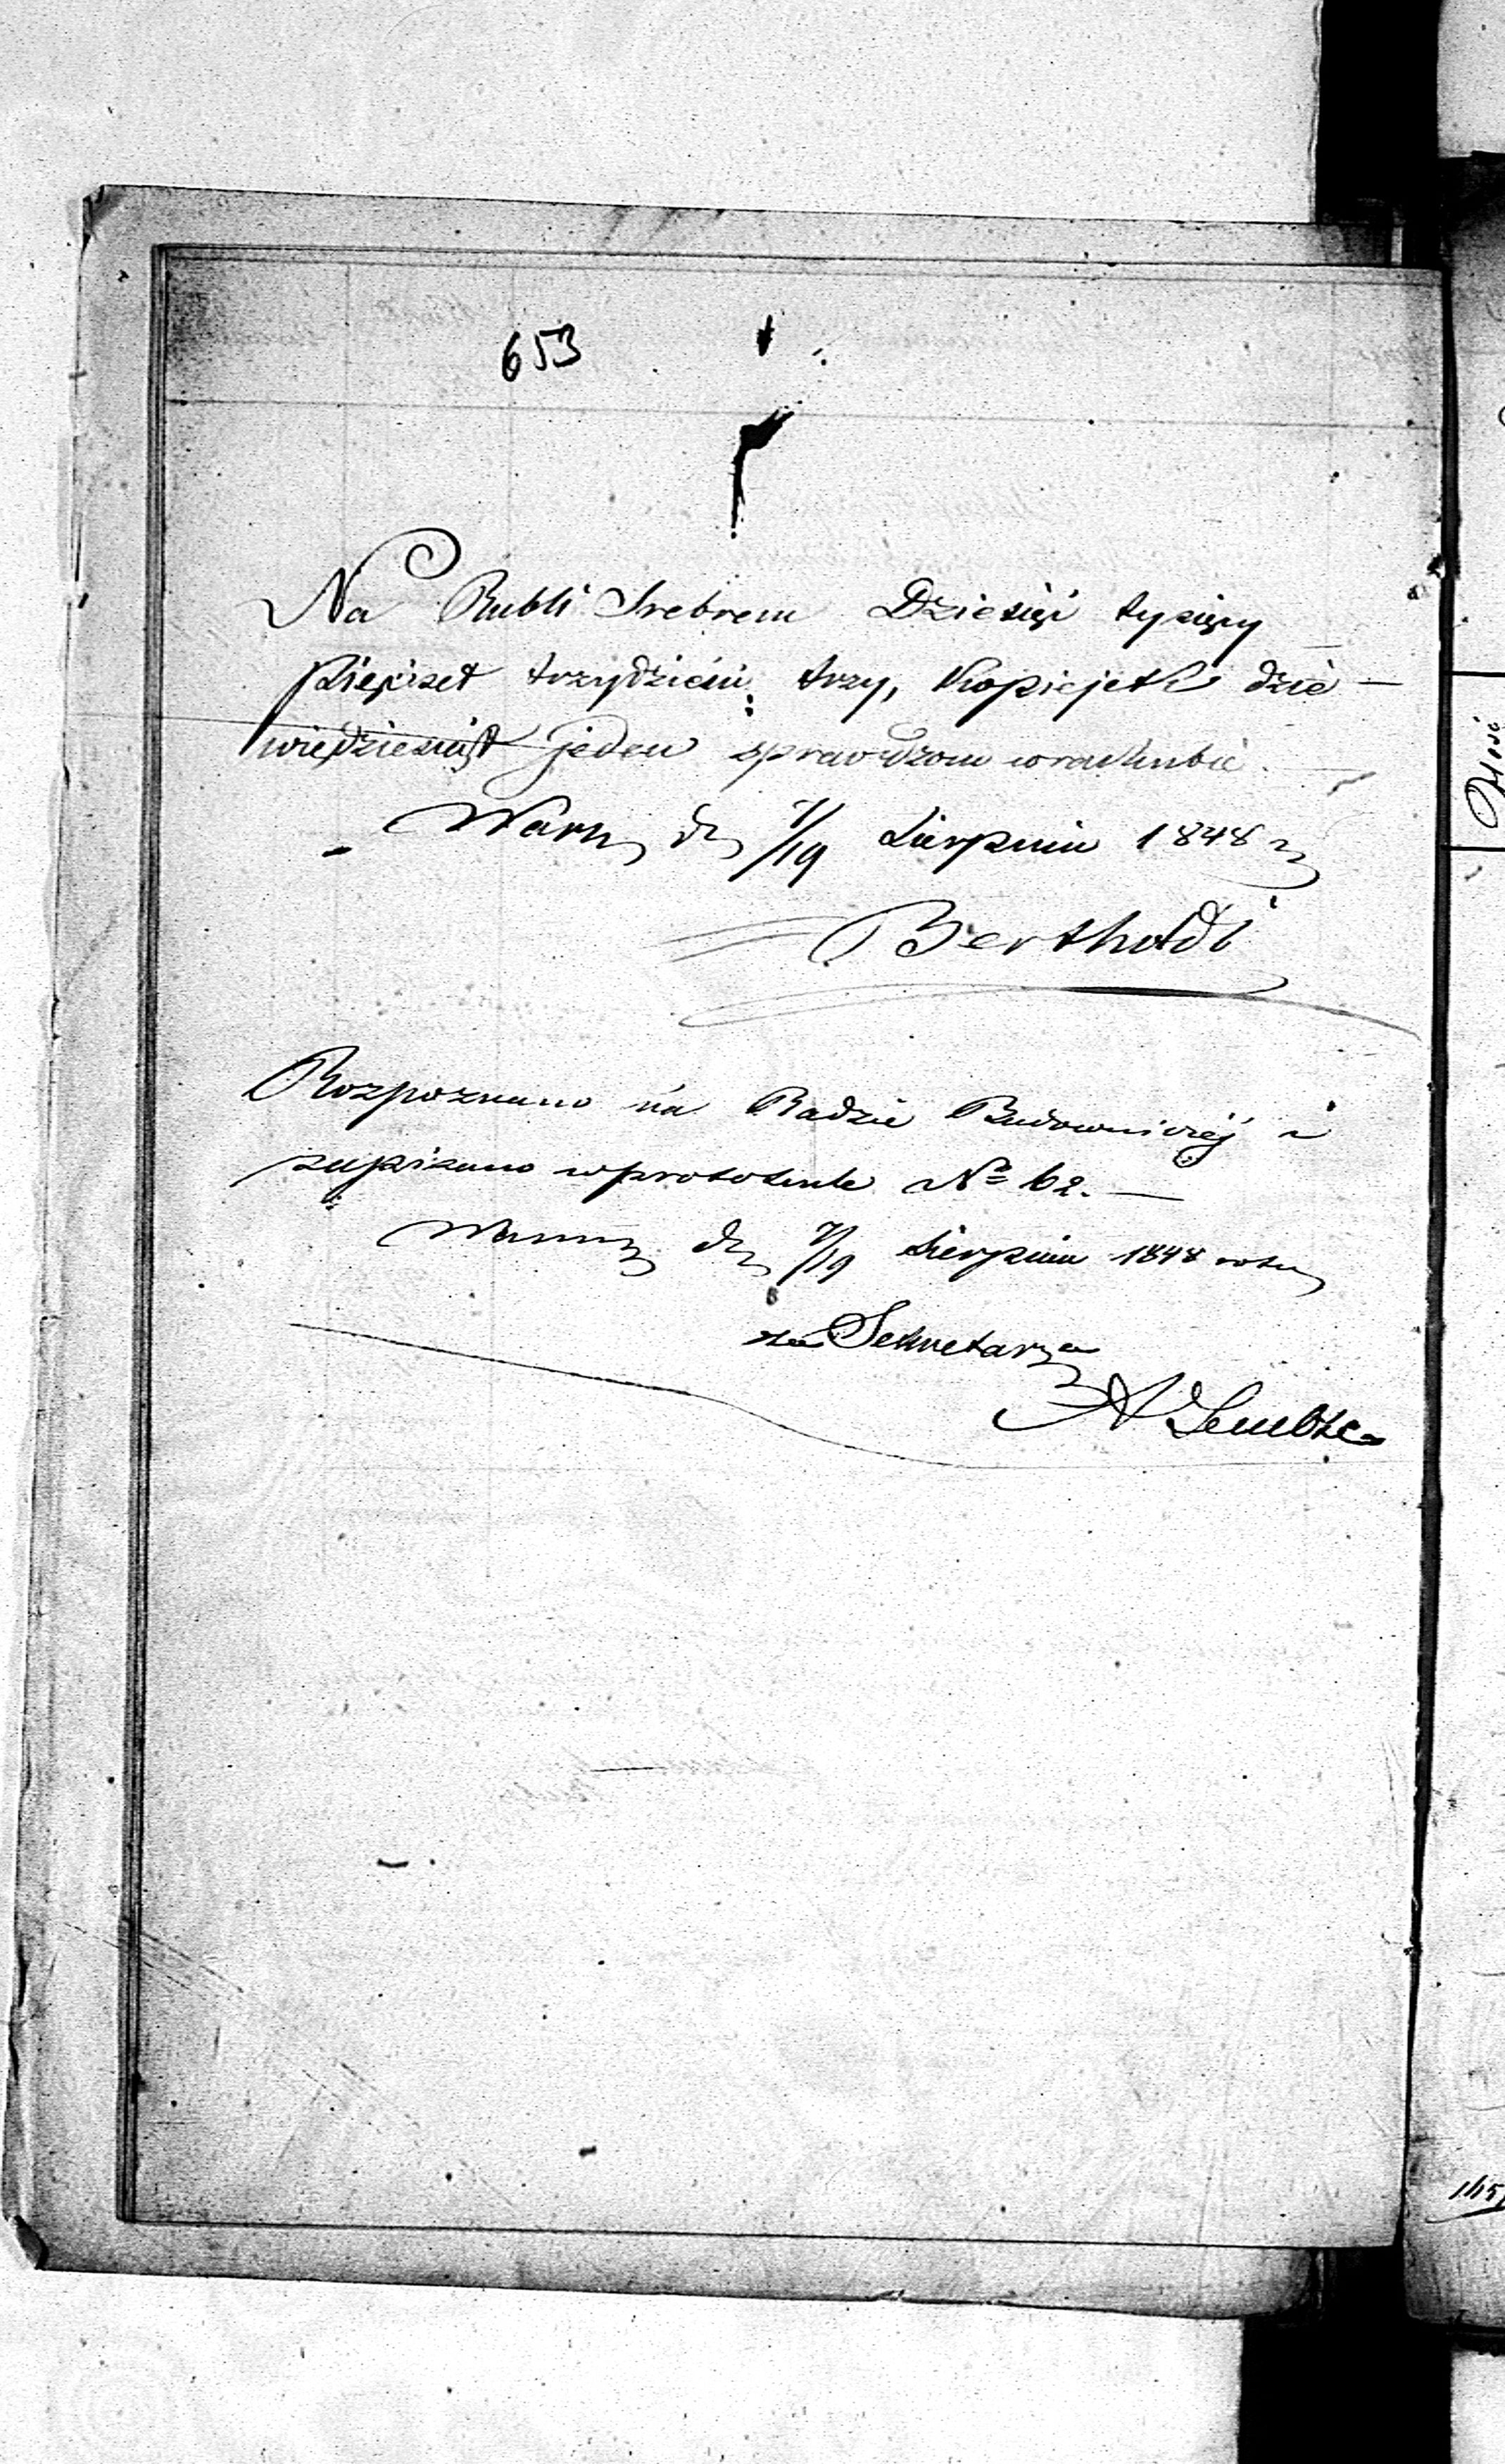 653
Na Rubli Srebrem Dziesięć tysięcy
pięćset trzydzieści trzy, Kopiejek dzie-
więdziesiąt jeden sprawdzono w rachubie.
Warsz d 7/19 Sierpnia 1848 r
Bertholdi
Rozpoznano na Radzie Budowniczéj i
zapisano w protokule No 62. —
Warsz d 7/19 Sierpnia 1848 roku
za Sekretarza
A Lembke
Ilość